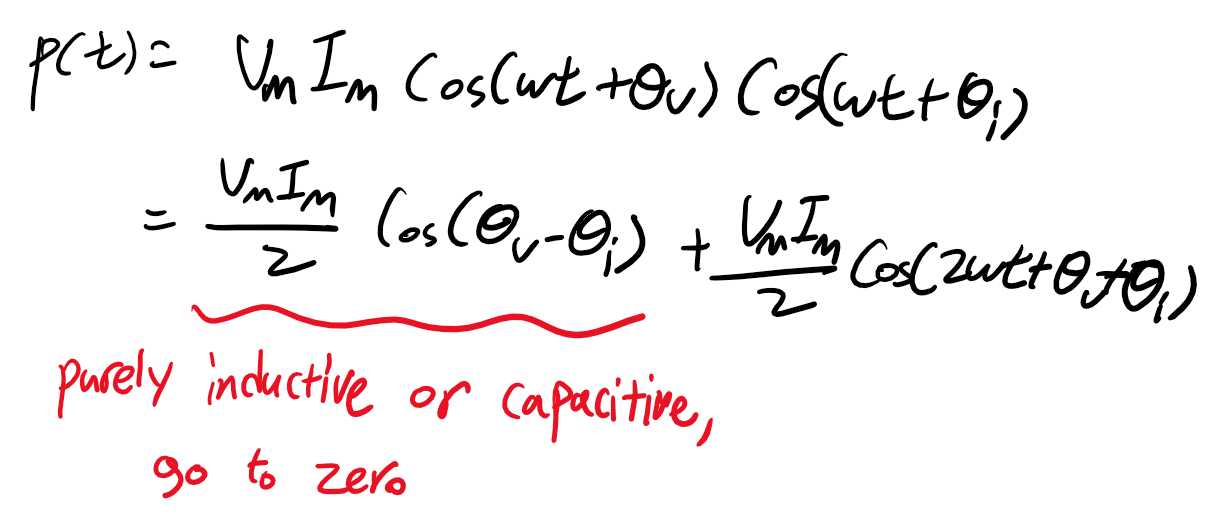 p(t) = VmIm Cos(ωt+θv) Cos(ωt+θi)
= VmIm/2 Cos(θv-θi) + VmIm/2 Cos(2ωt+θv+θi)
purely inductive or capacitive,
go to zero